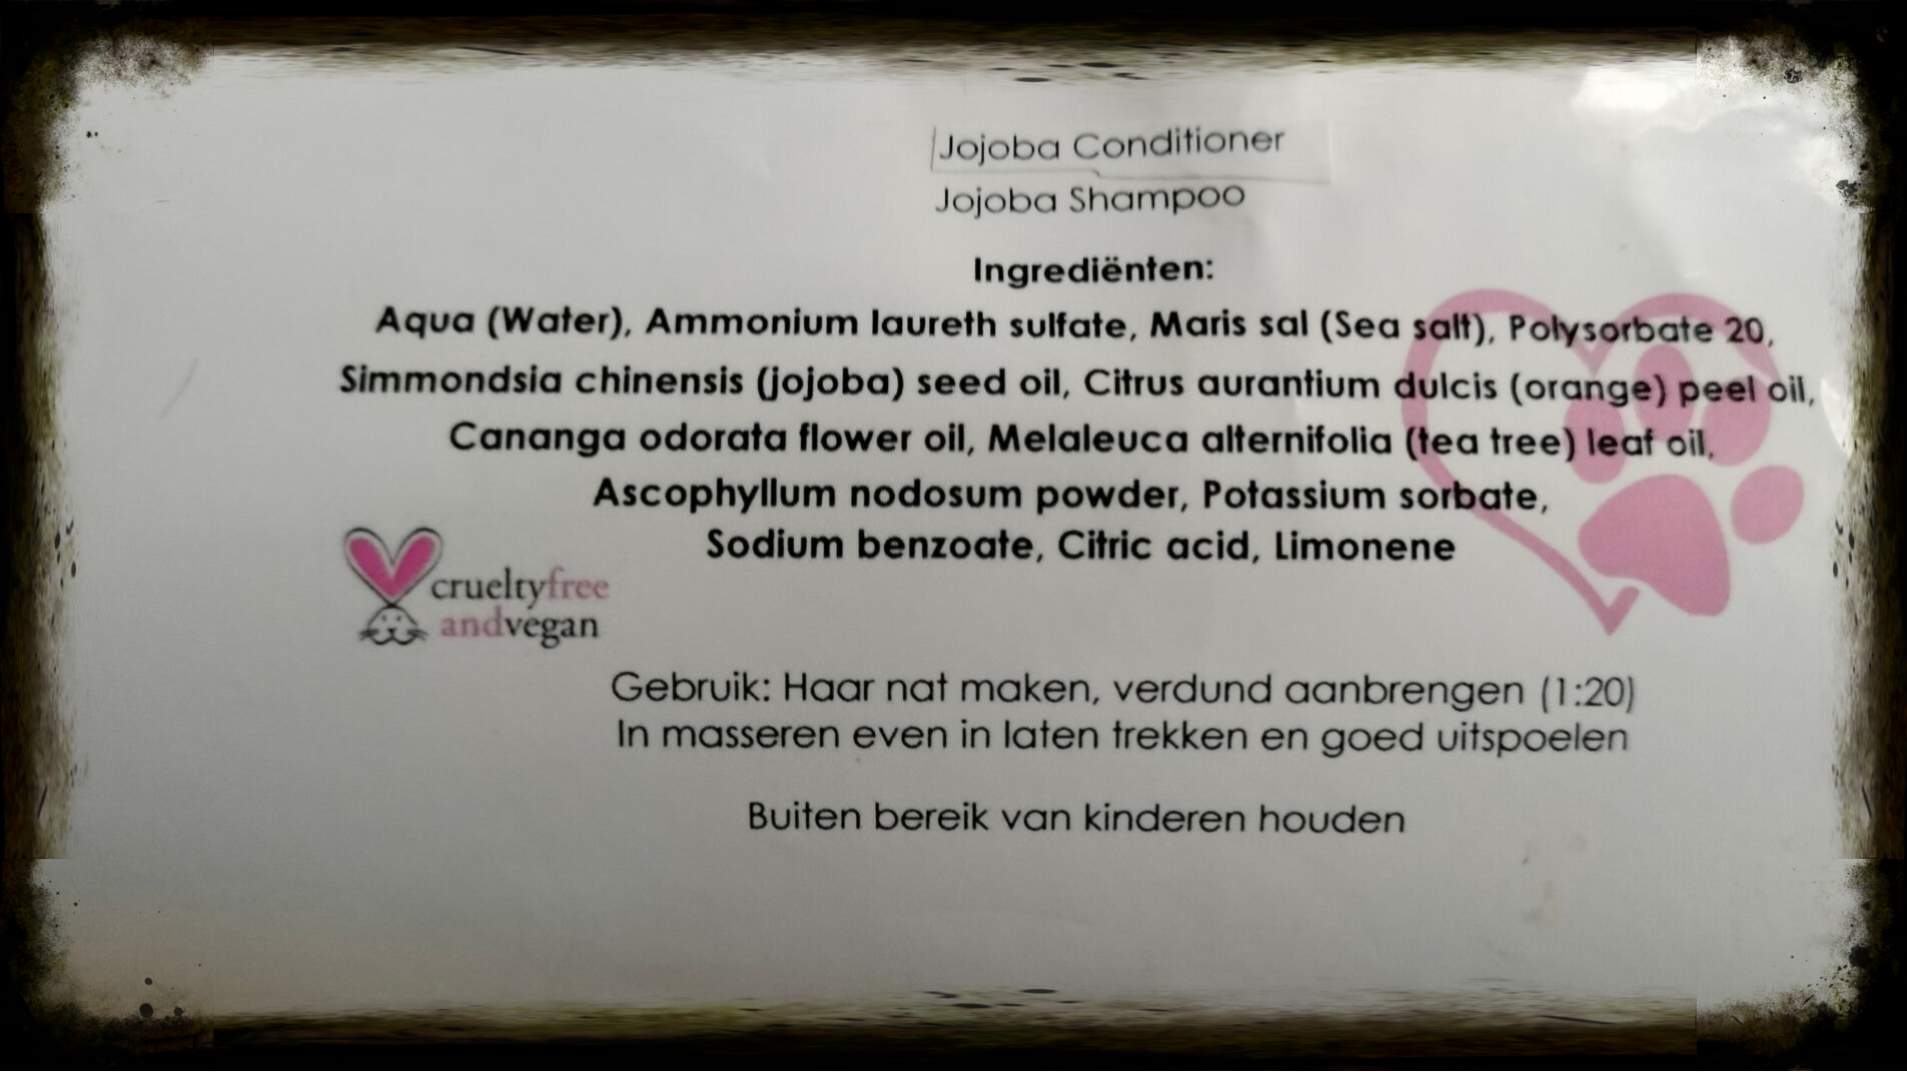 Jojoba Conditioner
Jojoba Shampoo
Ingrediënten:
Aqua (Water), Ammonium laureth sulfate, Maris sal (Sea salt), Polysorbate 20,
Simmondsia chinensis (jojoba) seed oil, Citrus aurantium dulcis (orange) peel oil,
Cananga odorata flower oil, Melaleuca alternifolia (tea tree) leaf oil,
Ascophyllum nodosum powder, Potassium sorbate,
Sodium benzoate, Citric acid, Limonene
crueltyfree
andvegan
Gebruik: Haar nat maken, verdund aanbrengen (1:20)
In masseren even in laten trekken en goed uitspoelen
Buiten bereik van kinderen houden